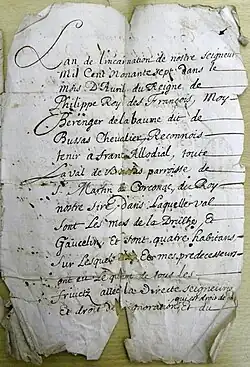 Lan de lincarnation de nostre seigneur
Mil Cent Nonante sept dans le
Mois D'Avril du Reigne de
Philippe Roy des françois, Moy
Bérenger de la baume dit de
Bussas Chevalier, Reconnois
tenir à franc Allodial, toute
La val de parroisse de
St Martin de Corconac, du Roy
nostre Sire, dans Laquelle val
Sont Les Mes de la Bruthe, et
Gaucelin, Et sont quatre habitans,
Sur Lesquels Et mes predecesseurs
ont eu de tous les
avec la Directe seigneurie
qui est droit de
Et droit de et du